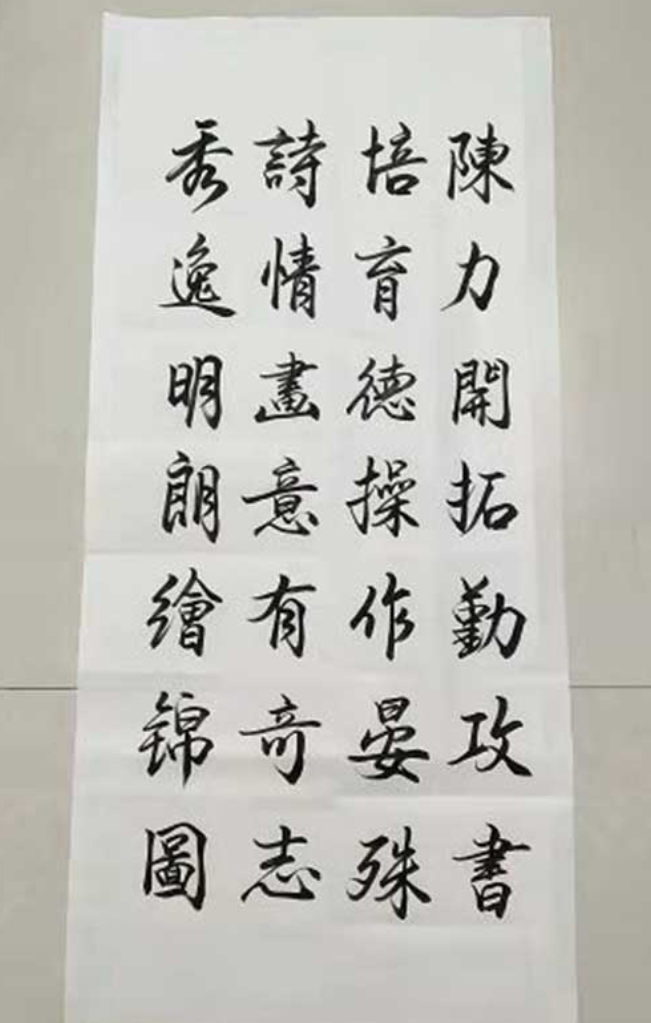 陳力開拓勤攻書
培育德操作晏殊
詩情畫意有奇志
秀逸明朗繪錦圖